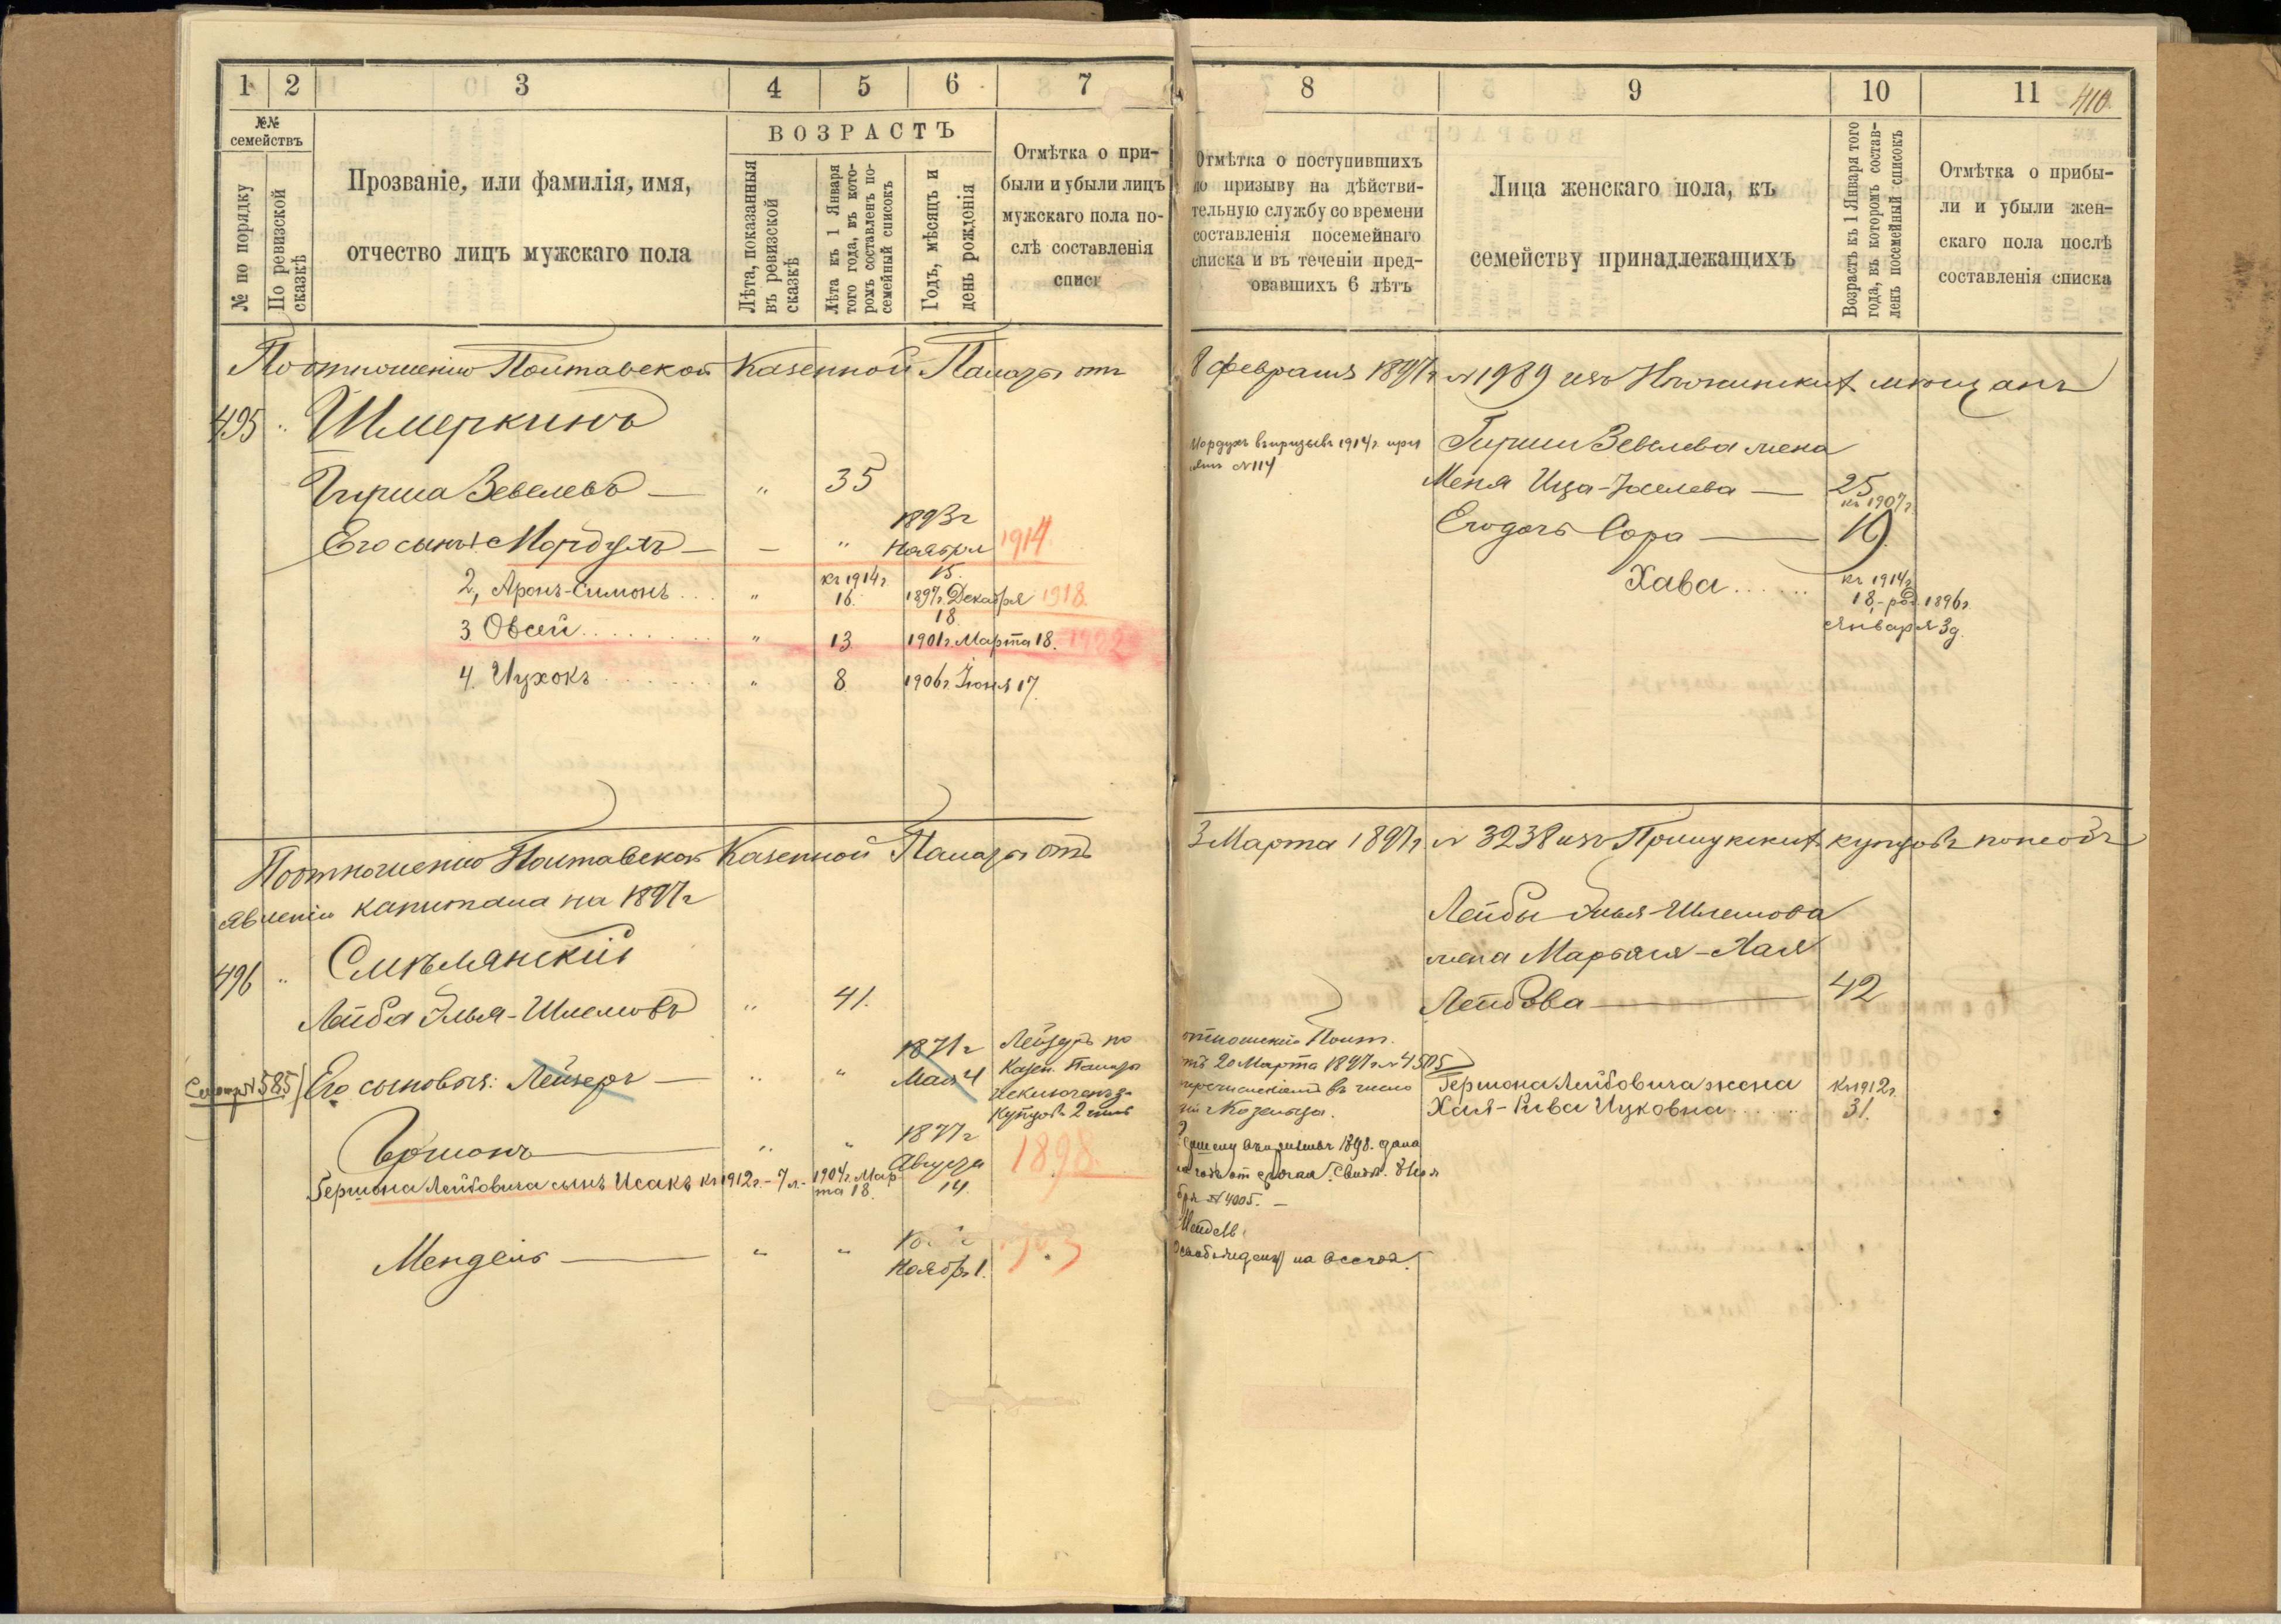 1 2 3 4 5 6 7
№№ семействъ
№ по порядку
По ревизской сказкѣ
Прозваніе, или фамилія, имя,
отчество лицъ мужскаго пола
ВОЗРАСТЪ
Лѣта, показанныя
въ ревизской
сказкѣ
Лѣта къ 1 Января
того года, въ кото-
ромъ составленъ по-
семейный списокъ
Годъ, мѣсяцъ и
день рожденія
Отмѣтка о при-
были и убыли лицъ
мужскаго пола по-
слѣ составленія
спис
По отношенію Полтавской Казенной Палаты отъ
495 " Шмеркинъ
Гирша Зевелевъ — " 35
Его сынъ: Мордухъ — — " 1893 г
Ноября
15. 1914
2, Аронъ-Симонъ " къ 1914 г.
16. 1897 г. Декабря
18. 1918.
3 Овсей " 13 1901 г. Марта 18. 1922
4. Ицхокъ " 8. 1906 г. Іюня 17.
По отношенію Полтавской Казенной Палаты отъ
явленіи капитала на 1897 г
496 " Смѣлянскій
Лейба Элья-Шлемовъ " 41.
585 Его сыновья: Лейзеръ — " " 1871 г
Мая 4
Лейзеръ по
Казен. Палаты
исключенъ
купцовъ 2 гил
Гершонъ — " " 1877 г
Августа
14. 1898.
Гершона Лейбовича сынъ Исакъ къ 1912 г. – 7 л. – 1904 г. Мар
та 18.
Мендель — " " Ноября 1.
8 9 10 11 410
Отмѣтка о поступившихъ
по призыву на дѣйстви-
тельную службу со времени
составленія посемейнаго
списка и въ теченіи пред-
овавшихъ 6 лѣтъ
Лица женскаго пола, къ
семейству принадлежащихъ
Возрастъ къ 1 Января того
года, въ которомъ состав-
ленъ посемейный списокъ
Отмѣтка о прибы-
ли и убыли жен-
скаго пола послѣ
составленія списка
8 февраля 1897 г № 1989 изъ мѣщанъ
Мордухъ въ призывъ 1914 г. при
нятъ № 114
Гирши Зевелева жена
Меня Ица-Іоселева — 25
Его дочь Сора — къ 1907 г.
19
Хава къ 1914 г.
18. – род. 1896 г.
Января 3 д.
3 Марта 1897 г № 3238 изъ Прилукскихъ купцовъ по необъ
Лейбы Элья-Шлемова
жена Марьяся-Хая
Лейбова — 42
отношенію Полт.
отъ 20 Марта 1897 г № 4505
перечисленіемъ въ число
г. Козельца.
Гершона Лейбовича жена къ 1912 г.
Хая-Рива Ицковна 31.
1898. дана
№ 4005. —
Мендель
освобожденъ на всегда.